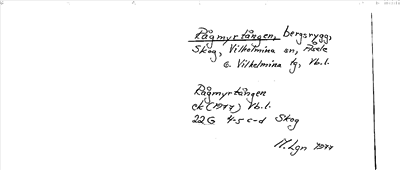 Rågmyrtången, bergsrygg,
Skog, Vilhelmina sn, Åsele
o. Vilhelmina tg, Vb.l.
Rågmyrtången
ek (1977) Vb.l.
22G 4-5 c-d Skog
M. Lgn 1977